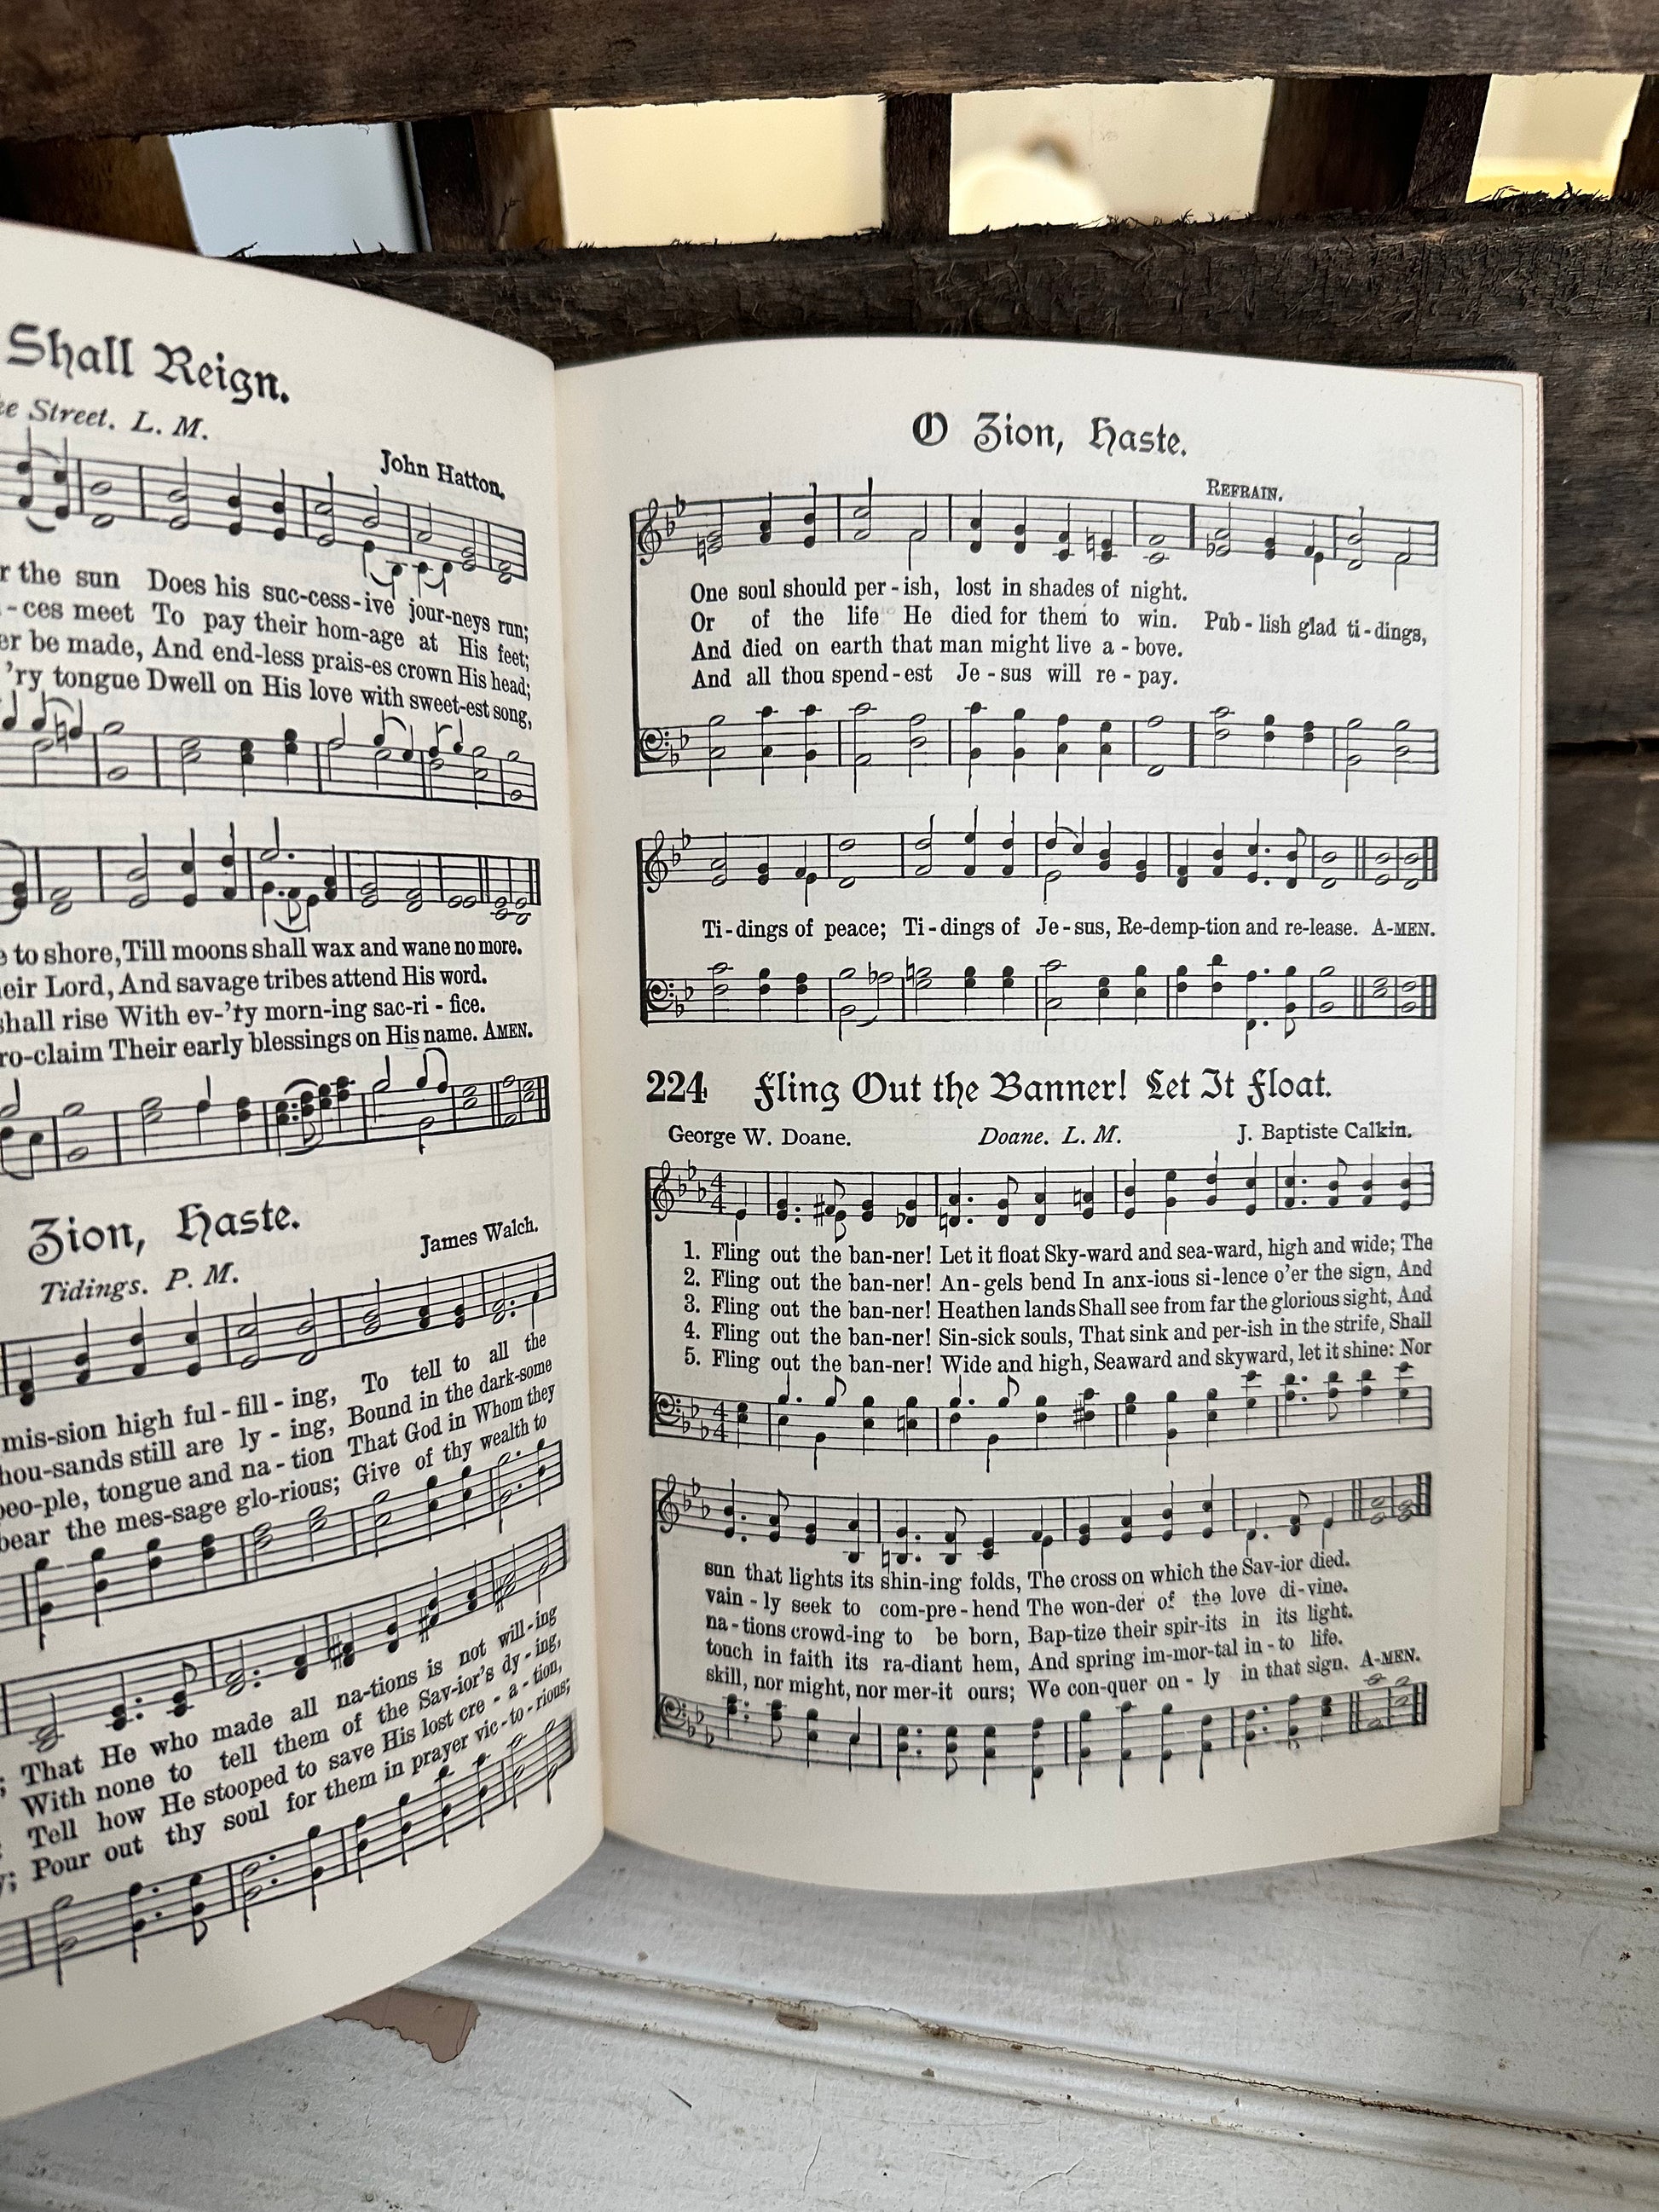 Shall Reign.
Street. L. M.
John Hatton.
the sun Does his suc-cess-ive jour-neys run;
-ces meet To pay their hom-age at His feet;
be made, And end-less prais-es crown His head;
'ry tongue Dwell on His love with sweet-est song,
to shore, Till moons shall wax and wane no more.
Lord, And savage tribes attend His word.
shall rise With ev-'ry morn-ing sac-ri-fice.
-claim Their early blessings on His name. AMEN.
Zion, Haste.
Tidings. P. M.
James Walch.
mis-sion high ful-fill-ing, To tell to all the
-sands still are ly-ing, Bound in the dark-some
peo-ple, tongue and na-tion That God in Whom they
bear the mes-sage glo-rious; Give of thy wealth to
; That He who made all na-tions is not will-ing
With none to tell them of the Sav-ior's dy-ing,
Tell how He stooped to save His lost cre-a-tion,
; Pour out thy soul for them in prayer vic-to-rious;
O Zion, Haste.
REFRAIN.
One soul should per-ish, lost in shades of night.
Or of the life He died for them to win. Pub-lish glad ti-dings,
And died on earth that man might live a-bove.
And all thou spend-est Je-sus will re-pay.
Ti-dings of peace; Ti-dings of Je-sus, Re-demp-tion and re-lease. A-MEN.
224 Fling Out the Banner! Let It Float.
George W. Doane. Doane. L. M. J. Baptiste Calkin.
4
4
1. Fling out the ban-ner! Let it float Sky-ward and sea-ward, high and wide; The
2. Fling out the ban-ner! An-gels bend In anx-ious si-lence o'er the sign, And
3. Fling out the ban-ner! Heathen lands Shall see from far the glorious sight, And
4. Fling out the ban-ner! Sin-sick souls, That sink and per-ish in the strife, Shall
5. Fling out the ban-ner! Wide and high, Seaward and skyward, let it shine: Nor
4
4
sun that lights its shin-ing folds, The cross on which the Sav-ior died.
vain-ly seek to com-pre-hend The won-der of the love di-vine.
na-tions crowd-ing to be born, Bap-tize their spir-its in its light.
touch in faith its ra-diant hem, And spring im-mor-tal in-to life.
skill, nor might, nor mer-it ours; We con-quer on-ly in that sign. A-MEN.